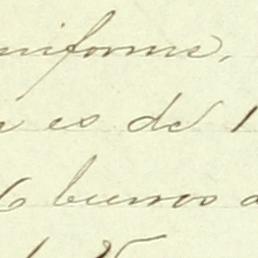 uniforme.
es de 1
6 burros